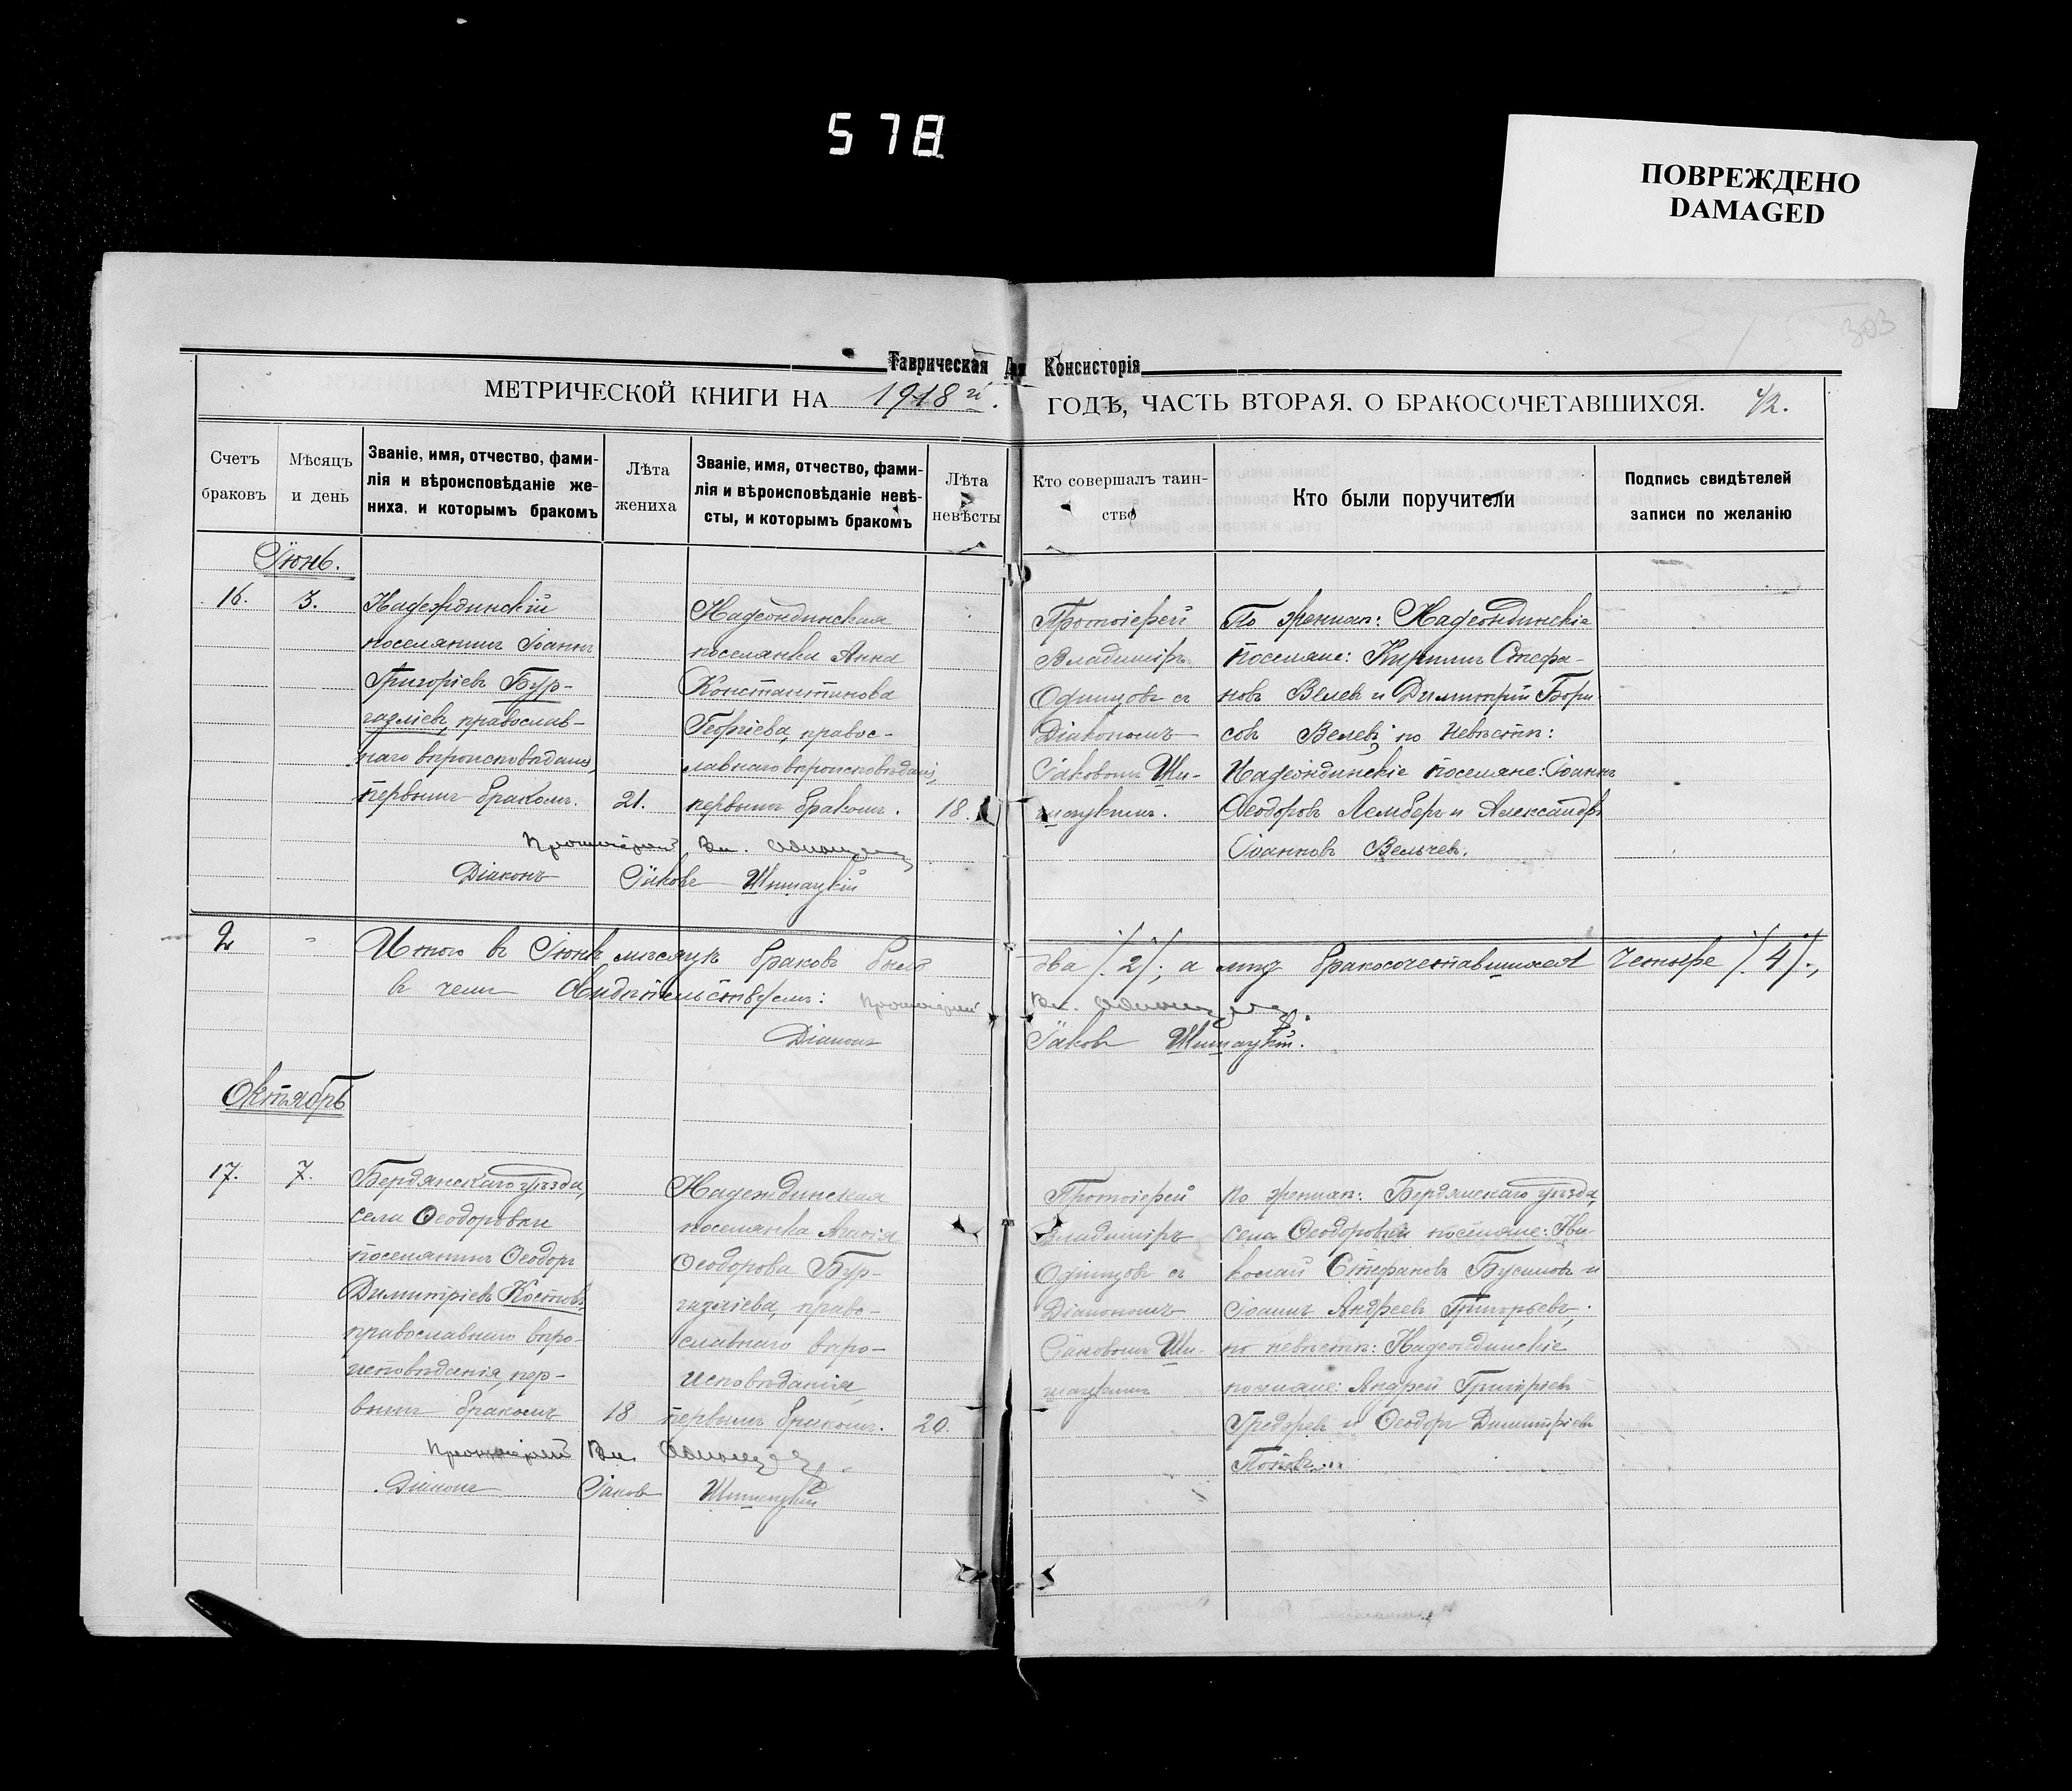 578
ПОВРЕЖДЕНО
DAMAGED
303
Таврическая Д Консисторія
МЕТРИЧЕСКОЙ КНИГИ НА 1918 й. ГОДЪ, ЧАСТЬ ВТОРАЯ, О БРАКОСОЧЕТАВШИХСЯ. 42.
Счетъ
браковъ
Мѣсяцъ
и день
Званіе, имя, отчество, фами-
лія и вѣроисповѣданіе же-
ниха, и которымъ бракомъ
Лѣта
жениха
Званіе, имя, отчество, фами-
лія и вѣроисповѣданіе невѣ-
сты, и которымъ бракомъ
Лѣта
невѣсты
Кто совершалъ таин-
ство
Кто были поручители
Подпись свидѣтелей
записи по желанію
Іюнь.
16. 3.
Надеждинскій
поселянинъ Іоаннъ
Григоріевъ Бур-
газліевъ, православ-
наго вѣроисповѣданія,
первымъ бракомъ.
21.
Надеждинская
поселянка Анна
Константинова
Георгіева, правос-
лавнаго вѣроисповѣданія,
первымъ бракомъ.
18.
Протоіерей
Владиміръ
Одинцовъ съ
Діакономъ
Іаковомъ Ши-
шацкимъ.
По женихѣ: Надеждинскіе
поселяне: Кириллъ Стефа-
новъ Велевъ и Димитрій Бори
совъ Велевъ; по невѣстѣ:
Надеждинскіе поселяне: Іоаннъ
Ѳеодоровъ Лемберъ и Александръ
Іоанновъ Вельчевъ.
Протоіерей Вл. Одинцовъ
Діаконъ Іаковъ Шишацкій
2 - Итого въ Іюнѣ мѣсяцѣ браковъ было два /.2/.; а лицъ бракосочетавшихся четыре /.4/.,
въ чемъ свидѣтельствуемъ: Протоіерей Вл. Одинцовъ.
Діаконъ Іаковъ Шишацкій.
Октябрь
17. 7.
Бердянскаго уѣзда,
села Ѳеодоровки
поселянинъ Ѳеодоръ
Димитріевъ Костовъ,
православнаго вѣро-
исповѣданія, пер-
вымъ бракомъ
18
Надеждинская
поселянка Агафія
Ѳеодорова Бур-
газліева, право-
славнаго вѣро-
исповѣданія,
первымъ бракомъ.
20.
Протоіерей
Владиміръ
Одинцовъ съ
Діакономъ
Іаковомъ Ши-
шацкимъ
по женихѣ: Бердянскаго уѣзда,
села Ѳеодоровки поселяне: Ни-
колай Стефановъ Бусиловъ и
Іоаннъ Андреевъ Григорьевъ;
по невѣстѣ: Надеждинскіе
поселяне: Андрей Григоріевъ
и Ѳеодоръ Димитріевъ
Поповъ.
Протоіерей Вл. Одинцовъ
Діаконъ Іаковъ Шишацкій